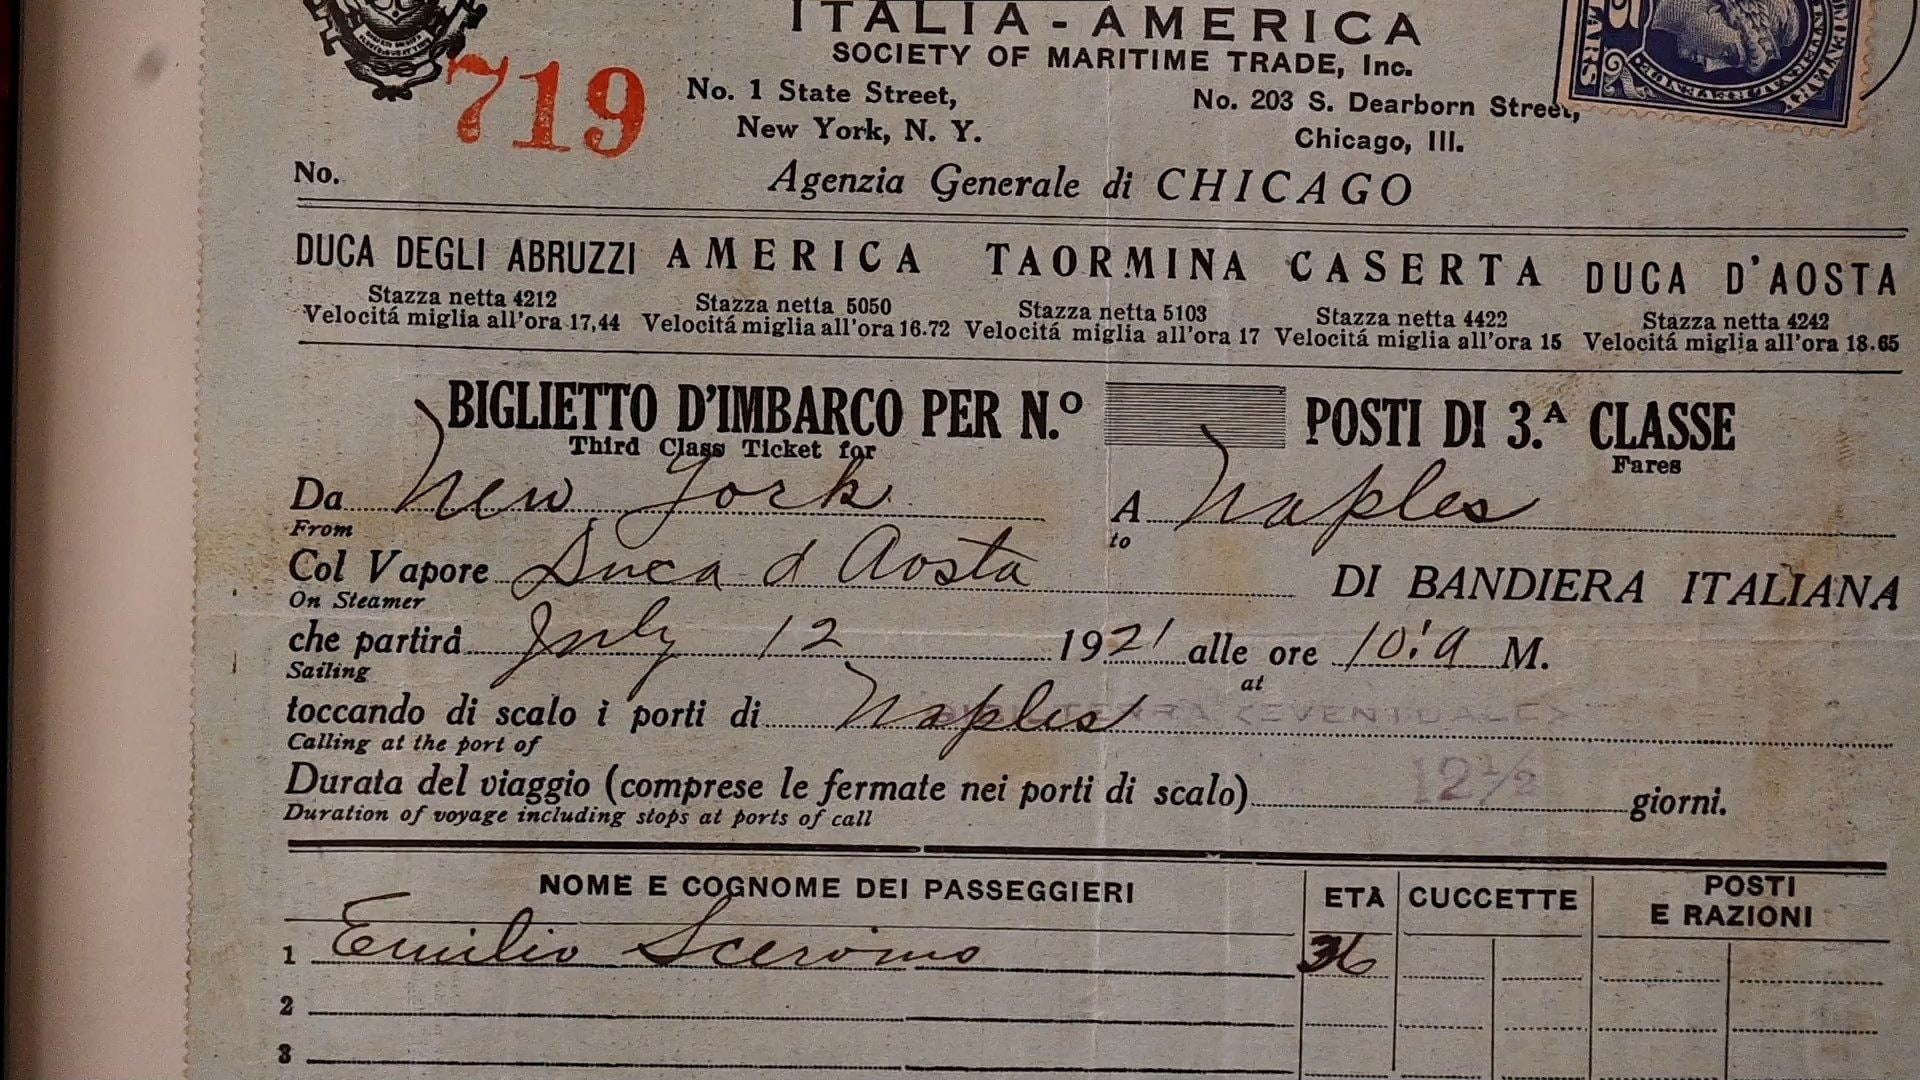 ITALIA-AMERICA
SOCIETY OF MARITIME TRADE, Inc.
No. 1 State Street,
New York, N. Y.
No. 203 S. Dearborn Street,
Chicago, Ill.
No. 719
Agenzia Generale di CHICAGO
DUCA DEGLI ABRUZZI AMERICA TAORMINA CASERTA DUCA D'AOSTA
Stazza netta 4212 Stazza netta 5050 Stazza netta 5103 Stazza netta 4422 Stazza netta 4242
Velocitá miglia all'ora 17,44 Velocitá miglia all'ora 16.72 Velocitá miglia all'ora 17 Velocitá miglia all'ora 15 Velocitá miglia all'ora 18.65
BIGLIETTO D'IMBARCO PER N.º POSTI DI 3.ª CLASSE
Third Class Ticket for Fares
Da New York A Naples
From to
Col Vapore Duca d Aosta DI BANDIERA ITALIANA
On Steamer
che partirá July 12 1921 alle ore 10:a M.
Sailing at
toccando di scalo i porti di Naples <EVENTUALE>
Calling at the port of
Durata del viaggio (comprese le fermate nei porti di scalo) 12½ giorni.
Duration of voyage including stops at ports of call
NOME E COGNOME DEI PASSEGGIERI ETÀ CUCCETTE POSTI E RAZIONI
1 Emilio 36
2
3